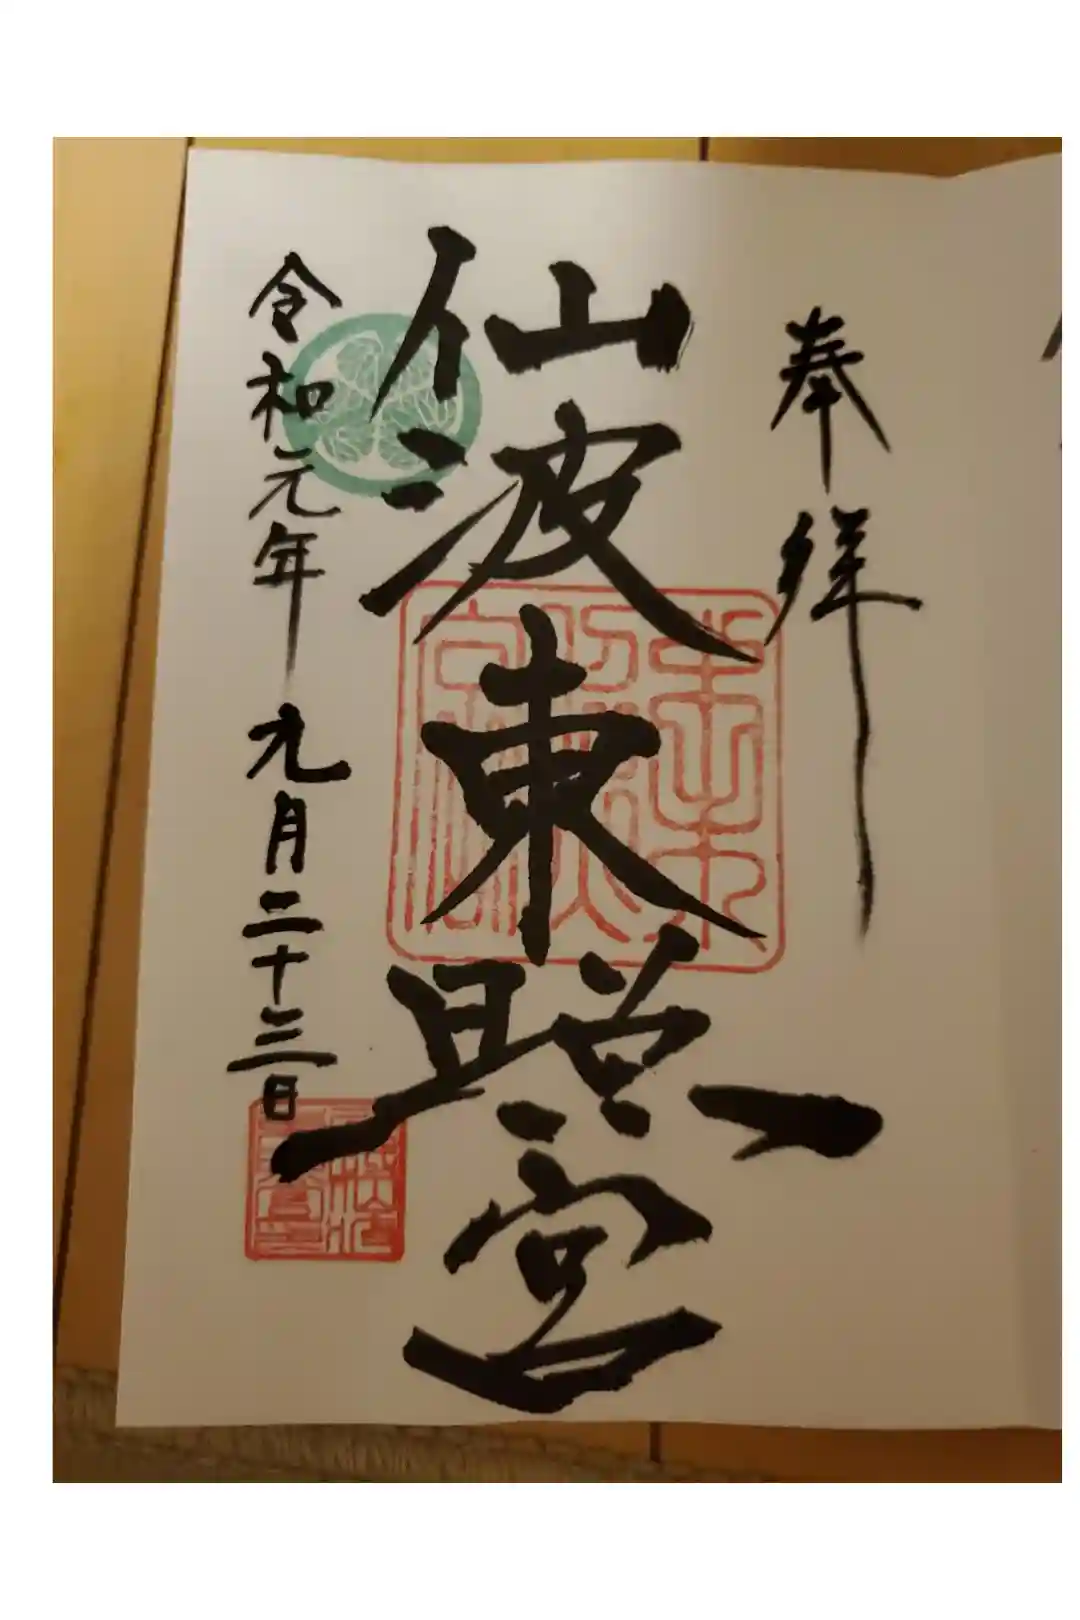 奉拝
仙波東照宮
令和元年九月二十三日